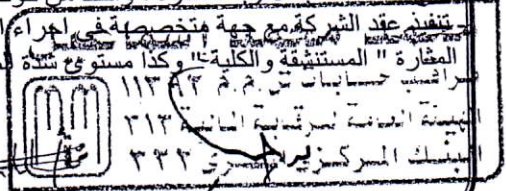 بتنفيذ عقد الشركة مع جهة متخصصة في اجراء
المثارة " المستنشقة والكلية " وكذا مستوى شدة
مراقب حسابات س.م.م
الهيئة العامة للرقابة المالية ٣١٣
البنك المركزي المصري ٣٣٣